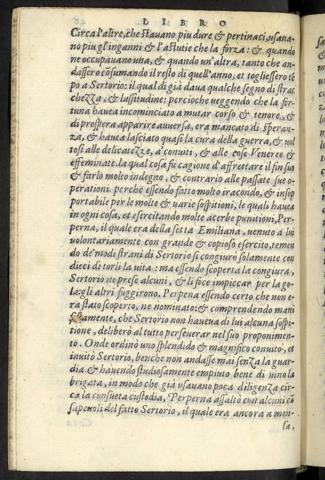 LIBRO
Circa l'altre, che stauano piu dure & pertinaci, usaua-
no piu gl'inganni & l'astutie che la forza: & quando
ne occupauano una, & quando un'altra, tanto che an-
dassero cōsumando il resto di quell'anno, et togliessero tē
po a Sertorio: il qual di già daua qualche segno di strac
chezza, & lassitudine: percioche ueggendo che la for-
tuna haueua incominciato a mutar corso & tenore, &
di prospera apparire auuersa, era mancato di speran-
za, & haueua lasciato quasi la cura della guerra, & uol
tosi alle delicatezze, a conuiti, & alle cose Veneree &
effeminate. la qual cosa fu cagione d'affrettare il fin suo
& farlo molto indegno, & contrario alle passate sue o-
perationi. perchè essendo fatto molto iracondo, & insop
portabile per le molte & uarie sospitioni, le quali haueua
in ogni cosa, et esercitando molte acerbe punitioni, Per-
perna, il quale era della setta Emiliana, uenuto a lui
uolontariamente con grande & copioso esercito, temen
do de' modi strani di Sertorio si congiurò solamente con
dieci di torli la uita: ma essendo scoperta la congiura,
Sertorio ne prese alcuni, & li fece impiccar per la go-
la: gli altri fuggirono. Perpena essendo certo che non e-
ra stato scoperto, ne nominato: & comprendendo mani
festamente, che Sertorio non haueua di lui alcuna sospi-
tione, deliberò al tutto perseuerar nel suo proponimen-
to. Onde ordinò uno splendido & magnifico conuito, et
inuitò Sertorio, benche non andasse mai senza la guar-
dia. & hauendo studiosamente empiuto bene di uino la
brigata, in modo che già usauano poca diligenza cir-
ca la consueta custodia, Perperna assaltò con alcuni cō
sapeuoli del fatto Sertorio, il quale era ancora a men-
sa,